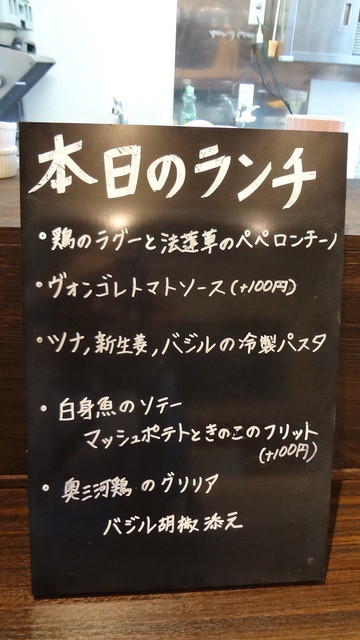 本日のランチ
• 鶏のラグーと法蓮草のペペロンチーノ
• ヴォンゴレトマトソース(+100円)
• ツナ,新生姜,バジルの冷製パスタ
• 白身魚のソテー
マッシュポテトときのこのフリット
(+100円)
• 奥三河鶏のグリリア
バジル胡椒添え